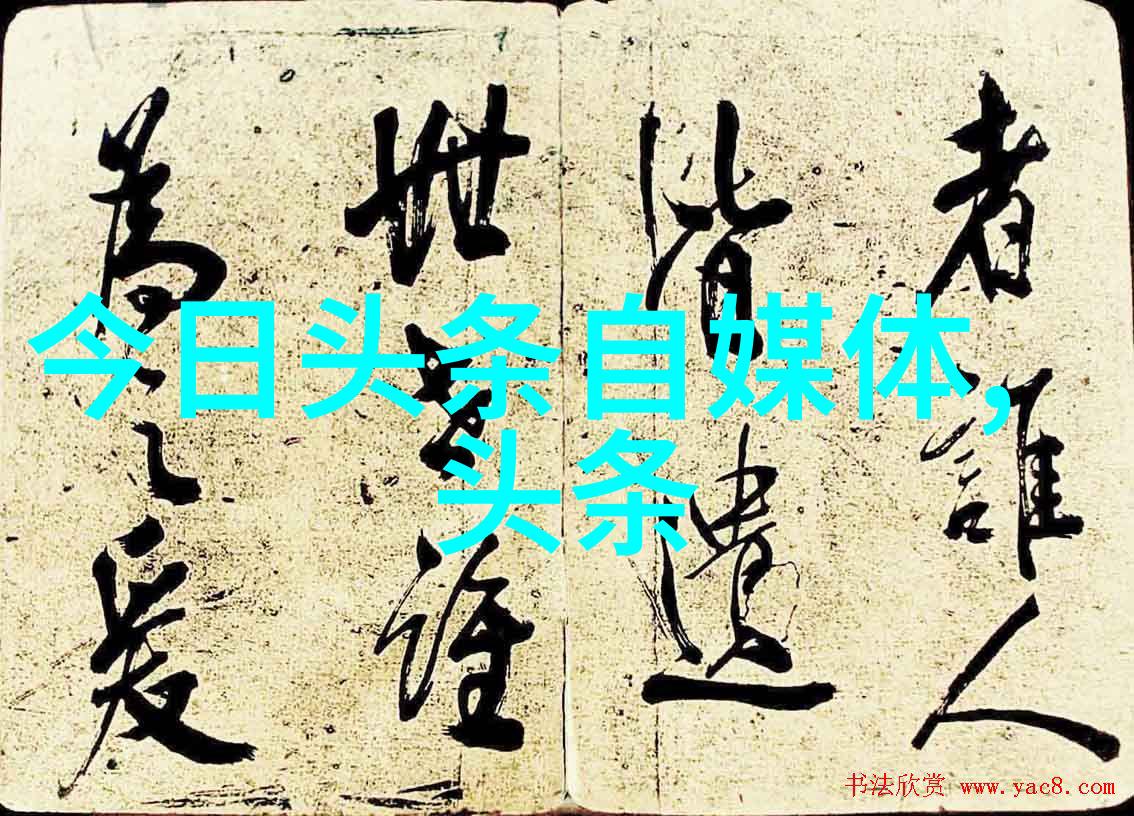 今日头条自媒体,
头条
者誰人
皆遺
世誰
為之爰
书法欣赏 www.yac8.com